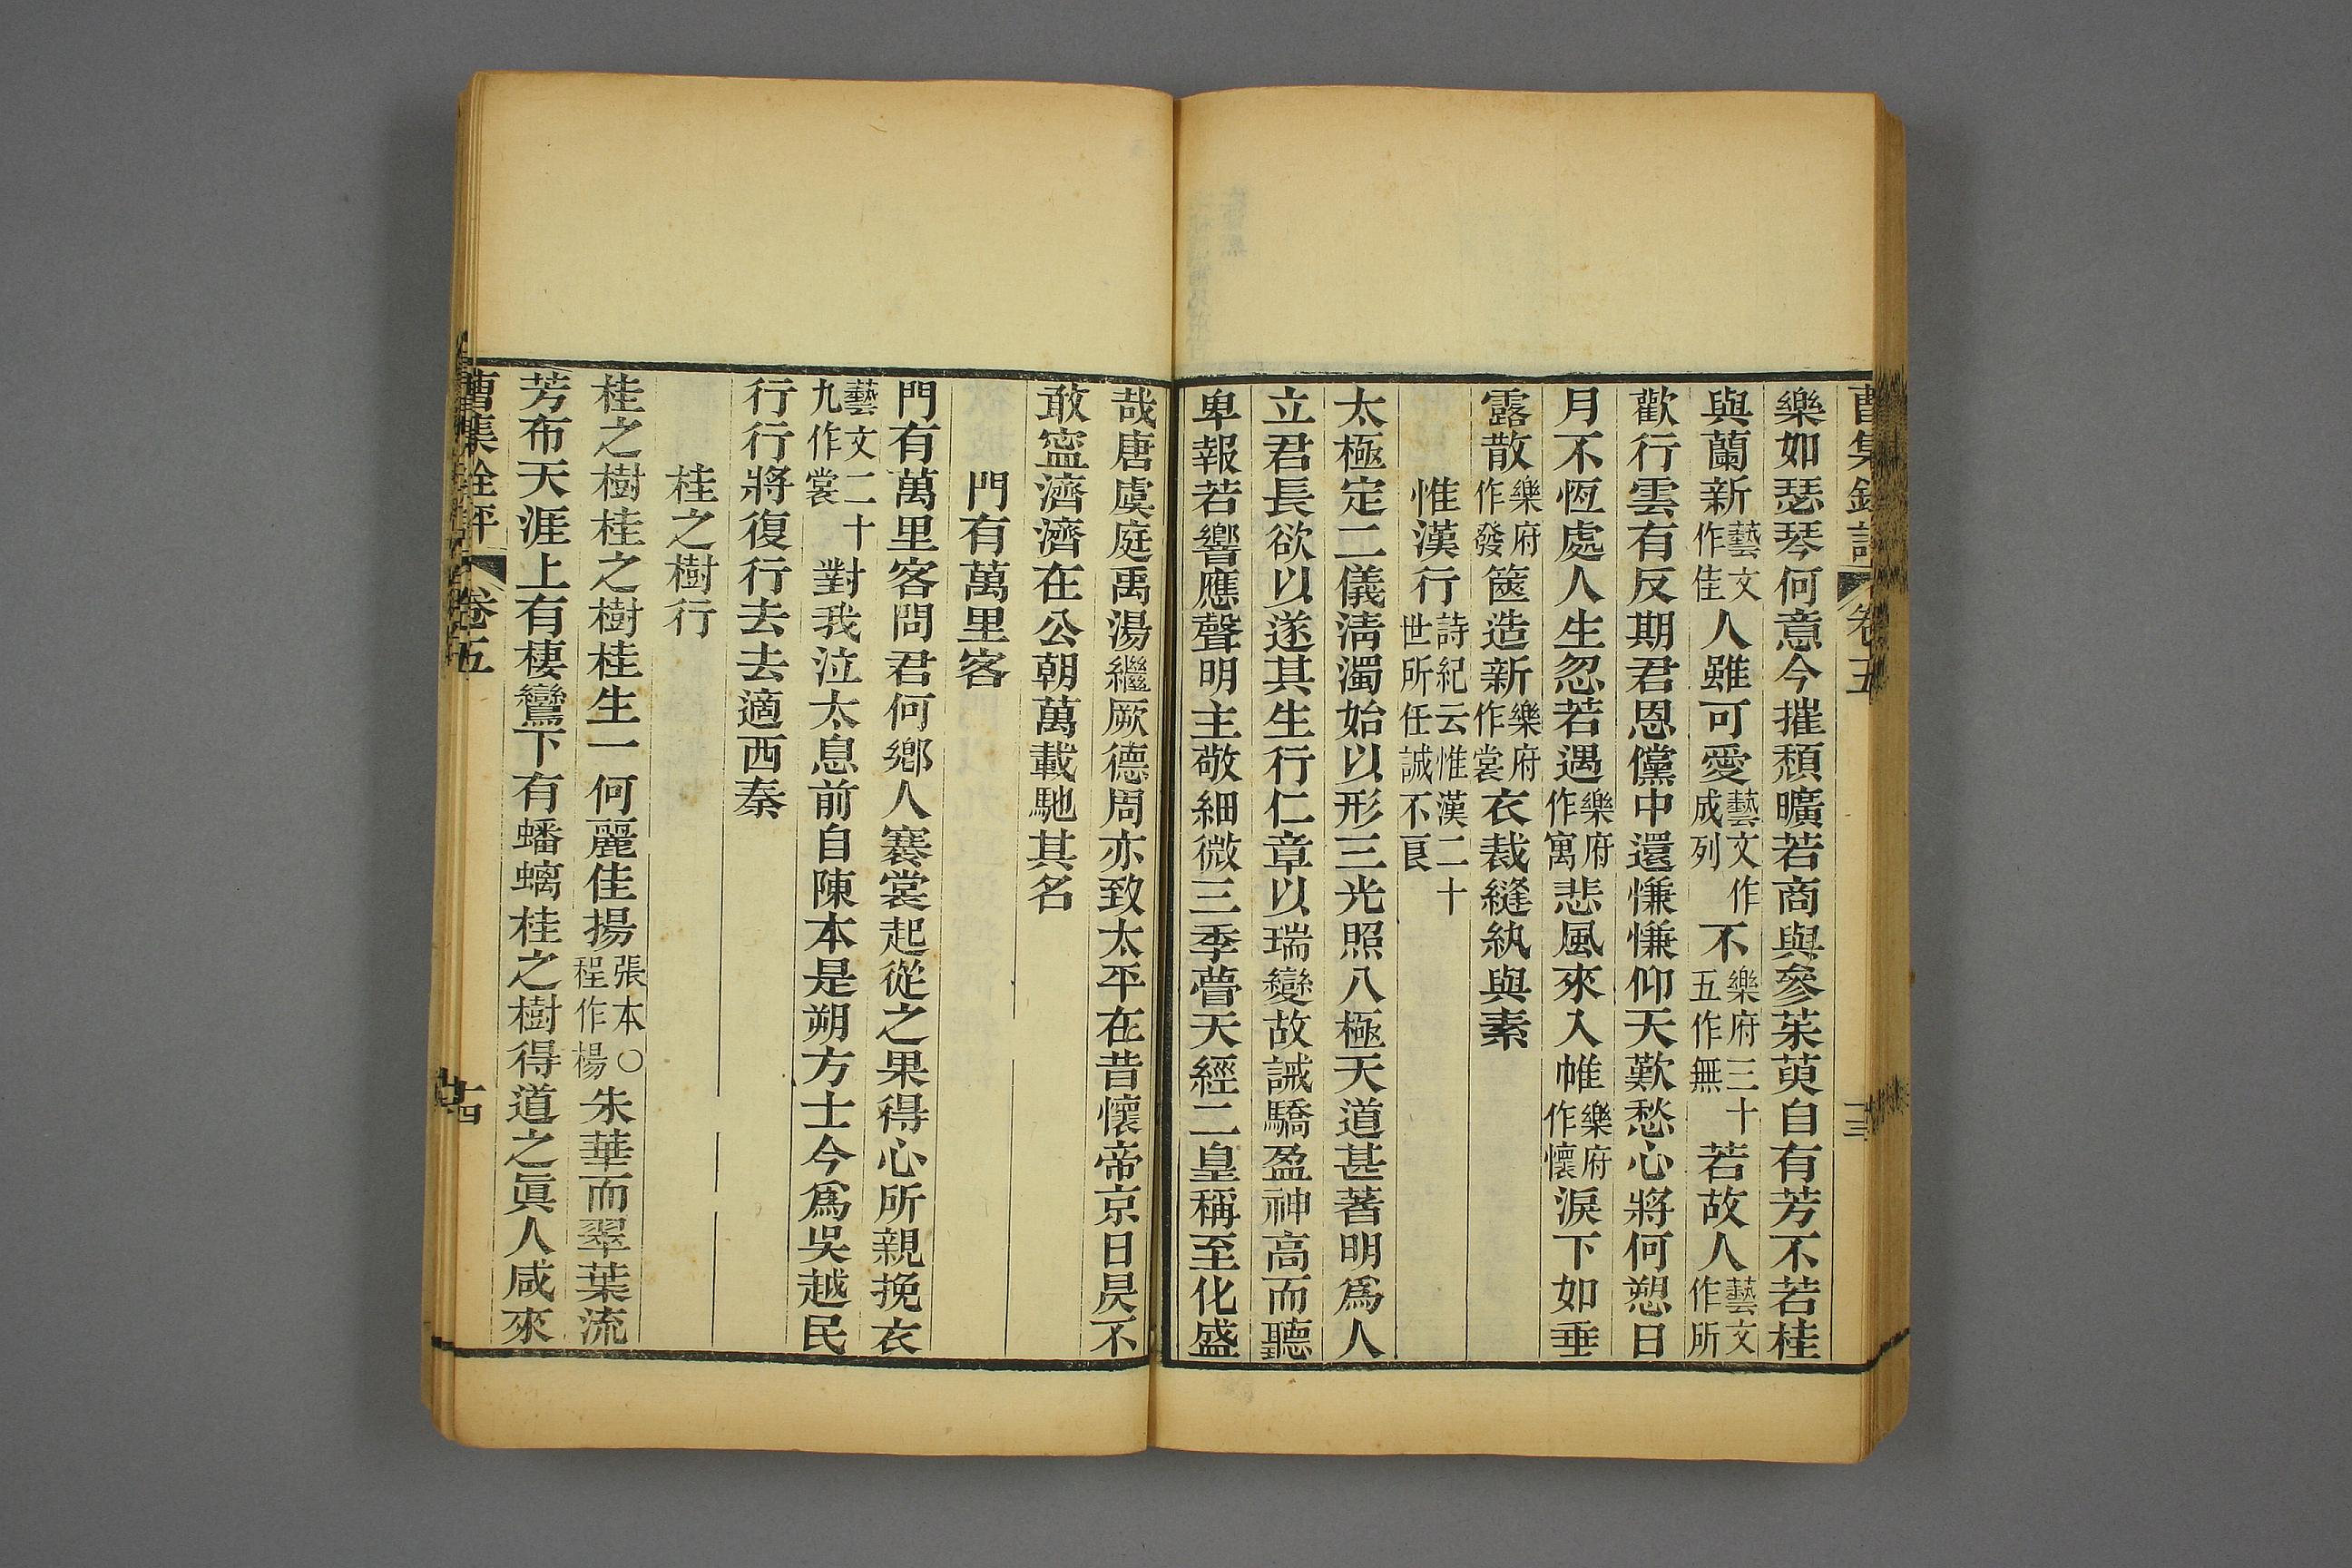 曹集銓評 卷五 十三
樂如瑟琴何意今摧頹曠若商與參茱萸自有芳不若桂
與蘭新藝文作佳人雖可愛藝文作成列不樂府三十五作無若故人藝文作所
歡行雲有反期君恩儻中還慊慊仰天歎愁心將何愬日
月不恆處人生忽若遇樂府作寓悲風來入帷樂府作懷淚下如垂
露散樂府作發篋造新樂府作裳衣裁縫紈與素
惟漢行詩紀云惟漢二十世所任誠不良
太極定二儀清濁始以形三光照八極天道甚著明爲人
立君長欲以遂其生行仁章以瑞變故誡驕盈神高而聽
卑報若響應聲明主敬細微三季瞢天經二皇稱至化盛
哉唐虞庭禹湯繼厥德周亦致太平在昔懷帝京日昃不
敢寍濟濟在公朝萬載馳其名
門有萬里客
門有萬里客問君何鄉人褰裳起從之果得心所親挽衣
藝文二十九作裳對我泣太息前自陳本是朔方士今爲吳越民
行行將復行去去適西秦
桂之樹行
桂之樹桂之樹桂生一何麗佳揚張本○程作楊朱華而翠葉流
芳布天涯上有棲鸞下有蟠螭桂之樹得道之眞人咸來
曹集銓評 卷五 十四